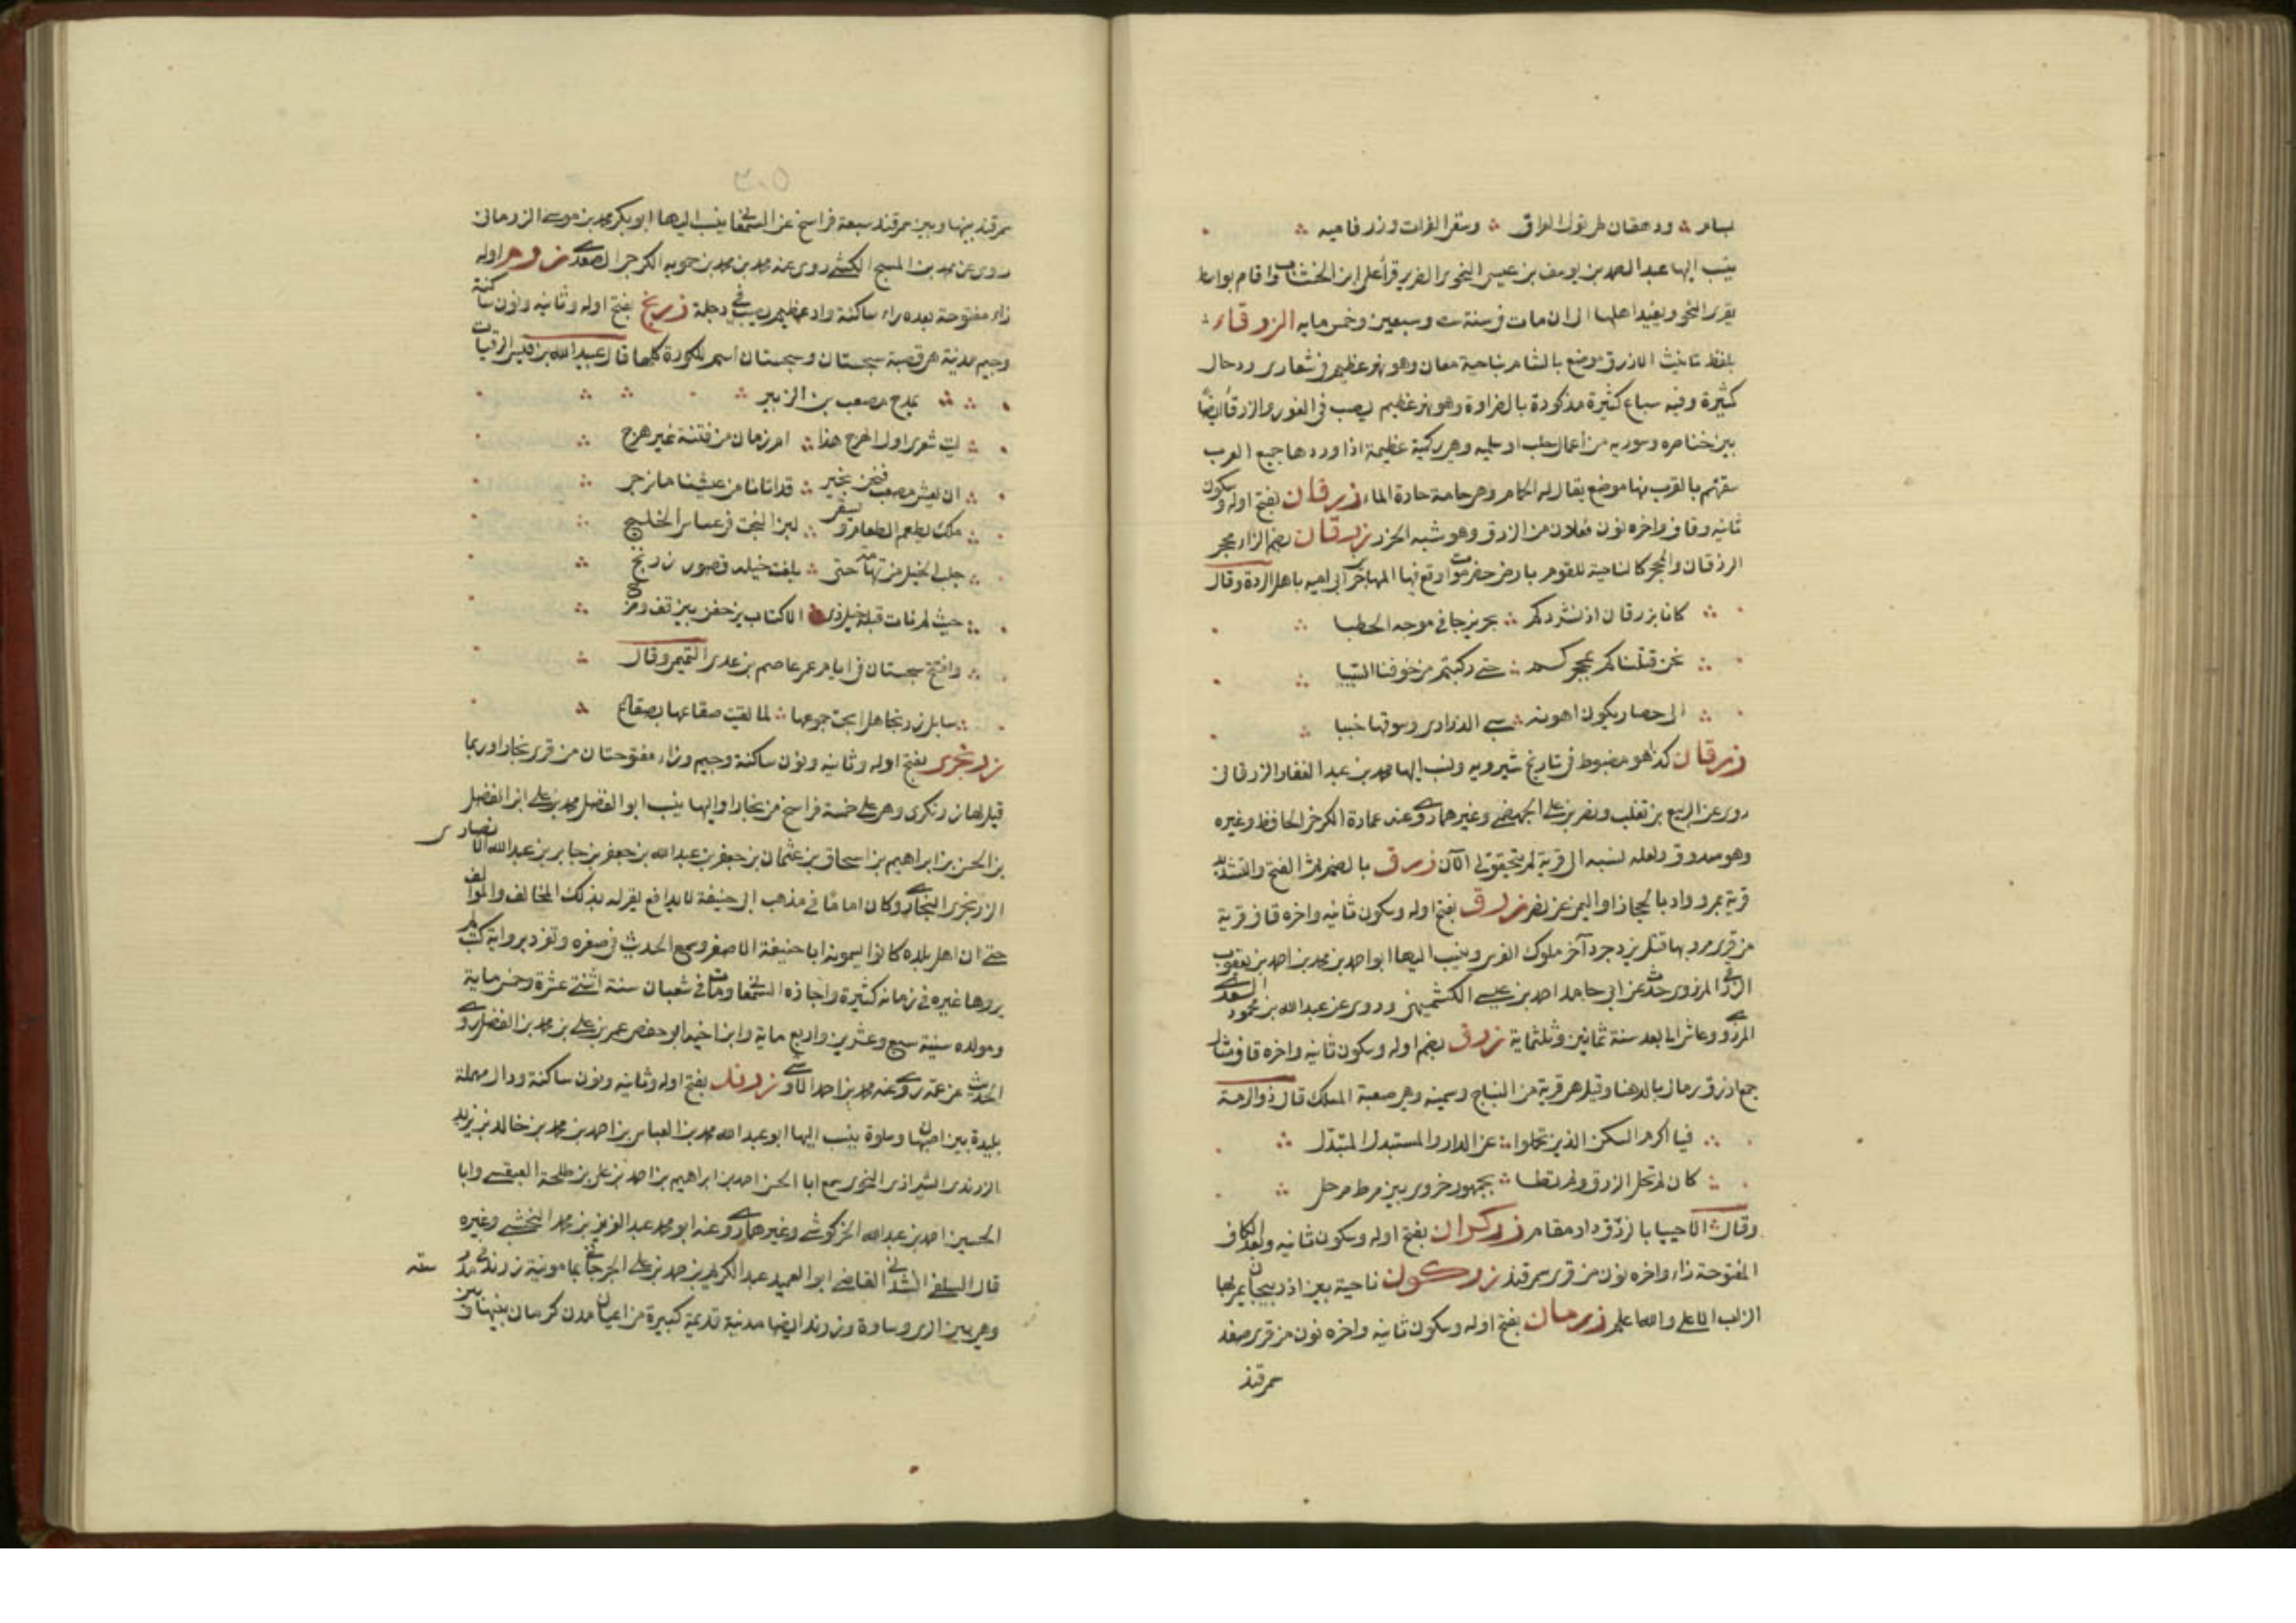 ينسب اليها عبد الصمد بن يوسف بن عيسى النحوى الضرير قرأ على ابن الخشاب واقام بواسط
يقرى النحو ويفيد اهلها الى ان مات فى سنة ست وسبعين وخمس مايه الزرقاء
بلفظ تانيث الازرق موضع بالشام بناحية معان وهو نهر عظيم فى شعارى ودحال
كثيرة وفيه سباع كثيرة مذكورة بالضراوة وهو نهر عظيم يصب فى الغور والزرقا ايضا
بين خناصره وسوريه من أعمال حلب او سلميه وهى ركية عظيمة اذا وردها جميع العرب
بالقرب منها موضع يقال له الحمام وهى حامة حارة الماء زرقان بفتح اوله وسكون
ثانيه وقاف واخره نون فعلان من الزرق وهو شبه الخزر زرقان بضم الزاء محجر
الزرقان والمحجر كالناحية للقوم بارض حضرموت اوقع فيها المهاجر ابن ابى اميه باهل الردة وقال
كانا بزرقان اذ نشردكم بحر يزجى فى موجه الحطبا
نحن قتلناكم بمحجركم حتى ركبتم من خوفنا السببا
الى حصار يكون اهونه سبى الذرارى وسوقها خببا
زرقان كذا هو مضبوط فى تاريخ شيرويه ونسب اليها محمد بن عبد الغفار الزرقانى
روى عن الربيع بن تغلب ونصر بن على الجهضمى وغيرهما روى عنه عمادة الكرخى الحافظ وغيره
وهو صدوق ولعله نسبه الى قرية لم يتحقق لى الآن زرق بالضم ثم الفتح والتشديد
قرية بمرو وواد بالحجاز او اليمن عن نصر زرق بفتح اوله وسكون ثانيه واخره قاف قرية
من قرى مرو بها قتل يزدجرد آخر ملوك الفرس وينسب اليها ابو احمد بن محمد بن احمد بن يعقوب
الزرقى المروزى حدث عن ابى حامد احمد بن عيسى الكشميهنى وروى عن عبد الله بن محمود السعدى
المروزى وعاش الى بعد سنة ثمانين وثلثماية زرق بضم اوله وسكون ثانيه واخره قاف
جمع ازرق رمال بالدهنا وقيل هى قرية من النباج وسمينه وهى صعبة المسلك قال ذو الرمة
فيا اكرم السكن الذين تحملوا عن الدار والمستبدل المتبدل
كان لم تحل الزرق مى ولم تطا بجمهور حزوى بين مرط مرحل
وقال الا حييا بالزرق دار مقام زركران بفتح اوله وسكون ثانيه وبعد الكاف
المفتوحة زاء واخره نون من قرى سمرقند زركون ناحية بين اذربيجان يمر بها
الزاب الاعلى والله اعلم زرمان بفتح اوله وسكون ثانيه واخره نون من قرى صغد
سمرقند
سمرقند بينها وبين سمرقند سبعة فراسخ عن السمعانى ينسب اليها ابو بكر محمد بن موسى الزرمانى
روى عن محمد بن المسبح الكشى روى عنه محمد بن محمد بن حمويه الكرجى الصغدى زرم اوله
زاء مفتوحة بعده راء ساكنة واد عظيم يصب فى دجلة زرنج بفتح اوله وثانيه ونون ساكنة
وجيم مدينة هى قصبة سجستان وسجستان اسم للكورة كلها قال عبيد الله بن قيس الرقيات
يمدح مصعب بن الزبير
ليت شعرى اول الهرج هذا ام زمان من فتنة غير هرج
ان يعش مصعب فنحن بخير قد اتانا من عيشنا ما نرجى
ملك يطعم الطعام ويسقى لبن البخت فى عساس الخلنج
جلب الخيل من تهامة حتى بلغت خيله قصور زرنج
حيث لم تات قبله خيل ذى الاكتاف يزحفن بين قف ومرج
وافتتح سجستان فى ايام عمر عاصم بن عدى التميمى وقال
سايل زرنجا هل ابحت جموعها لما لقيت صقاعها بصقاع
زرنجرى بفتح اوله وثانيه ونون ساكنة وجيم وزاء مفتوحتان من قرى بخارا وربما
قيل لها زرنكرى وهى على خمسة فراسخ من بخارا واليها ينسب ابو الفضل محمد بن على ابن الفضل
بن الحسن بن ابراهيم بن اسحاق بن عثمان بن جعفر بن عبد الله بن جعفر بن جابر بن عبد الله الانصارى
الزرنجرى البخارى وكان اماما فى مذهب ابى حنيفة لا يدافع يقر له بذلك المخالف والموالف
حتى ان اهل بلده كانوا يسمونه ابا حنيفة الاصغر وسمع الحديث فى صغره وتفرد برواية كتب لم
يروها غيره فى زمانه كثيرة واجازه السمعانى ومات فى شعبان سنة اثنتى عشرة وخمس ماية
ومولده سنة سبع وعشرين واربع ماية وابن اخيه ابو حفص عمر بن على بن محمد بن الفضل روى
الحديث عن عمه روى عنه محمد بن احمد زرند بفتح اوله وثانيه ونون ساكنة ودال مهملة
بليدة بين اصبهان وساوة ينسب اليها ابو عبد الله محمد بن العباس بن احمد بن محمد بن خالد بن يزيد
الزرندى الشيرازى النحوى سمع ابا الحسن احمد بن ابراهيم بن احمد بن على بن طلحة العبقسى وابا
الحسين احمد بن عبد الله الخركوشى وغيرهما روى عنه ابو محمد عبد العزيز بن محمد النخشبى وغيره
قال السلفى انشدنى القاضى ابو العميد عبد الكريم بن احمد بن على الجرجانى بمامونية زرند
وهى بين الرى وساوة وزرند ايضا مدينة قديمة كبيرة من اعيان مدن كرمان بينها وبين